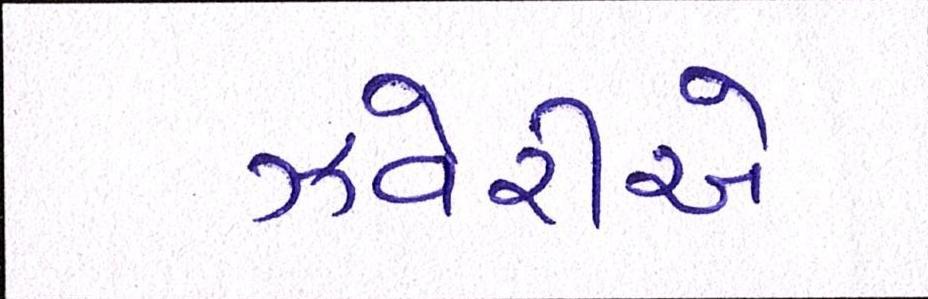 ઝવેરીએ